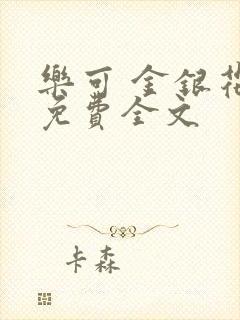 樂可 金銀花
免費全文
卡森